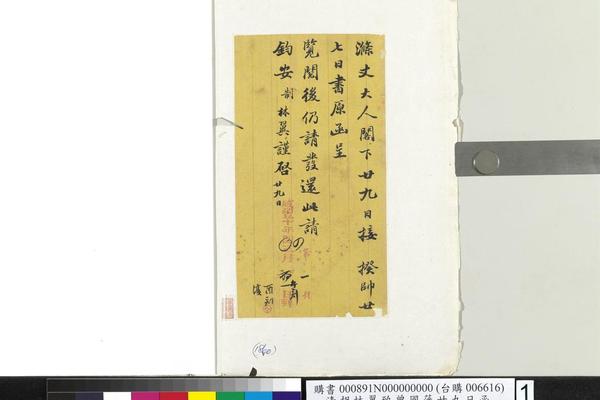 滌丈大人閣下廿九日接 揆帥廿
七日書原函呈
覽閱後仍請發還此請
鈞安 制林翼謹啓 廿九日
(1860)
購書 000891N000000000 (台購 006616)
清胡林翼致曾國藩廿九日函
1